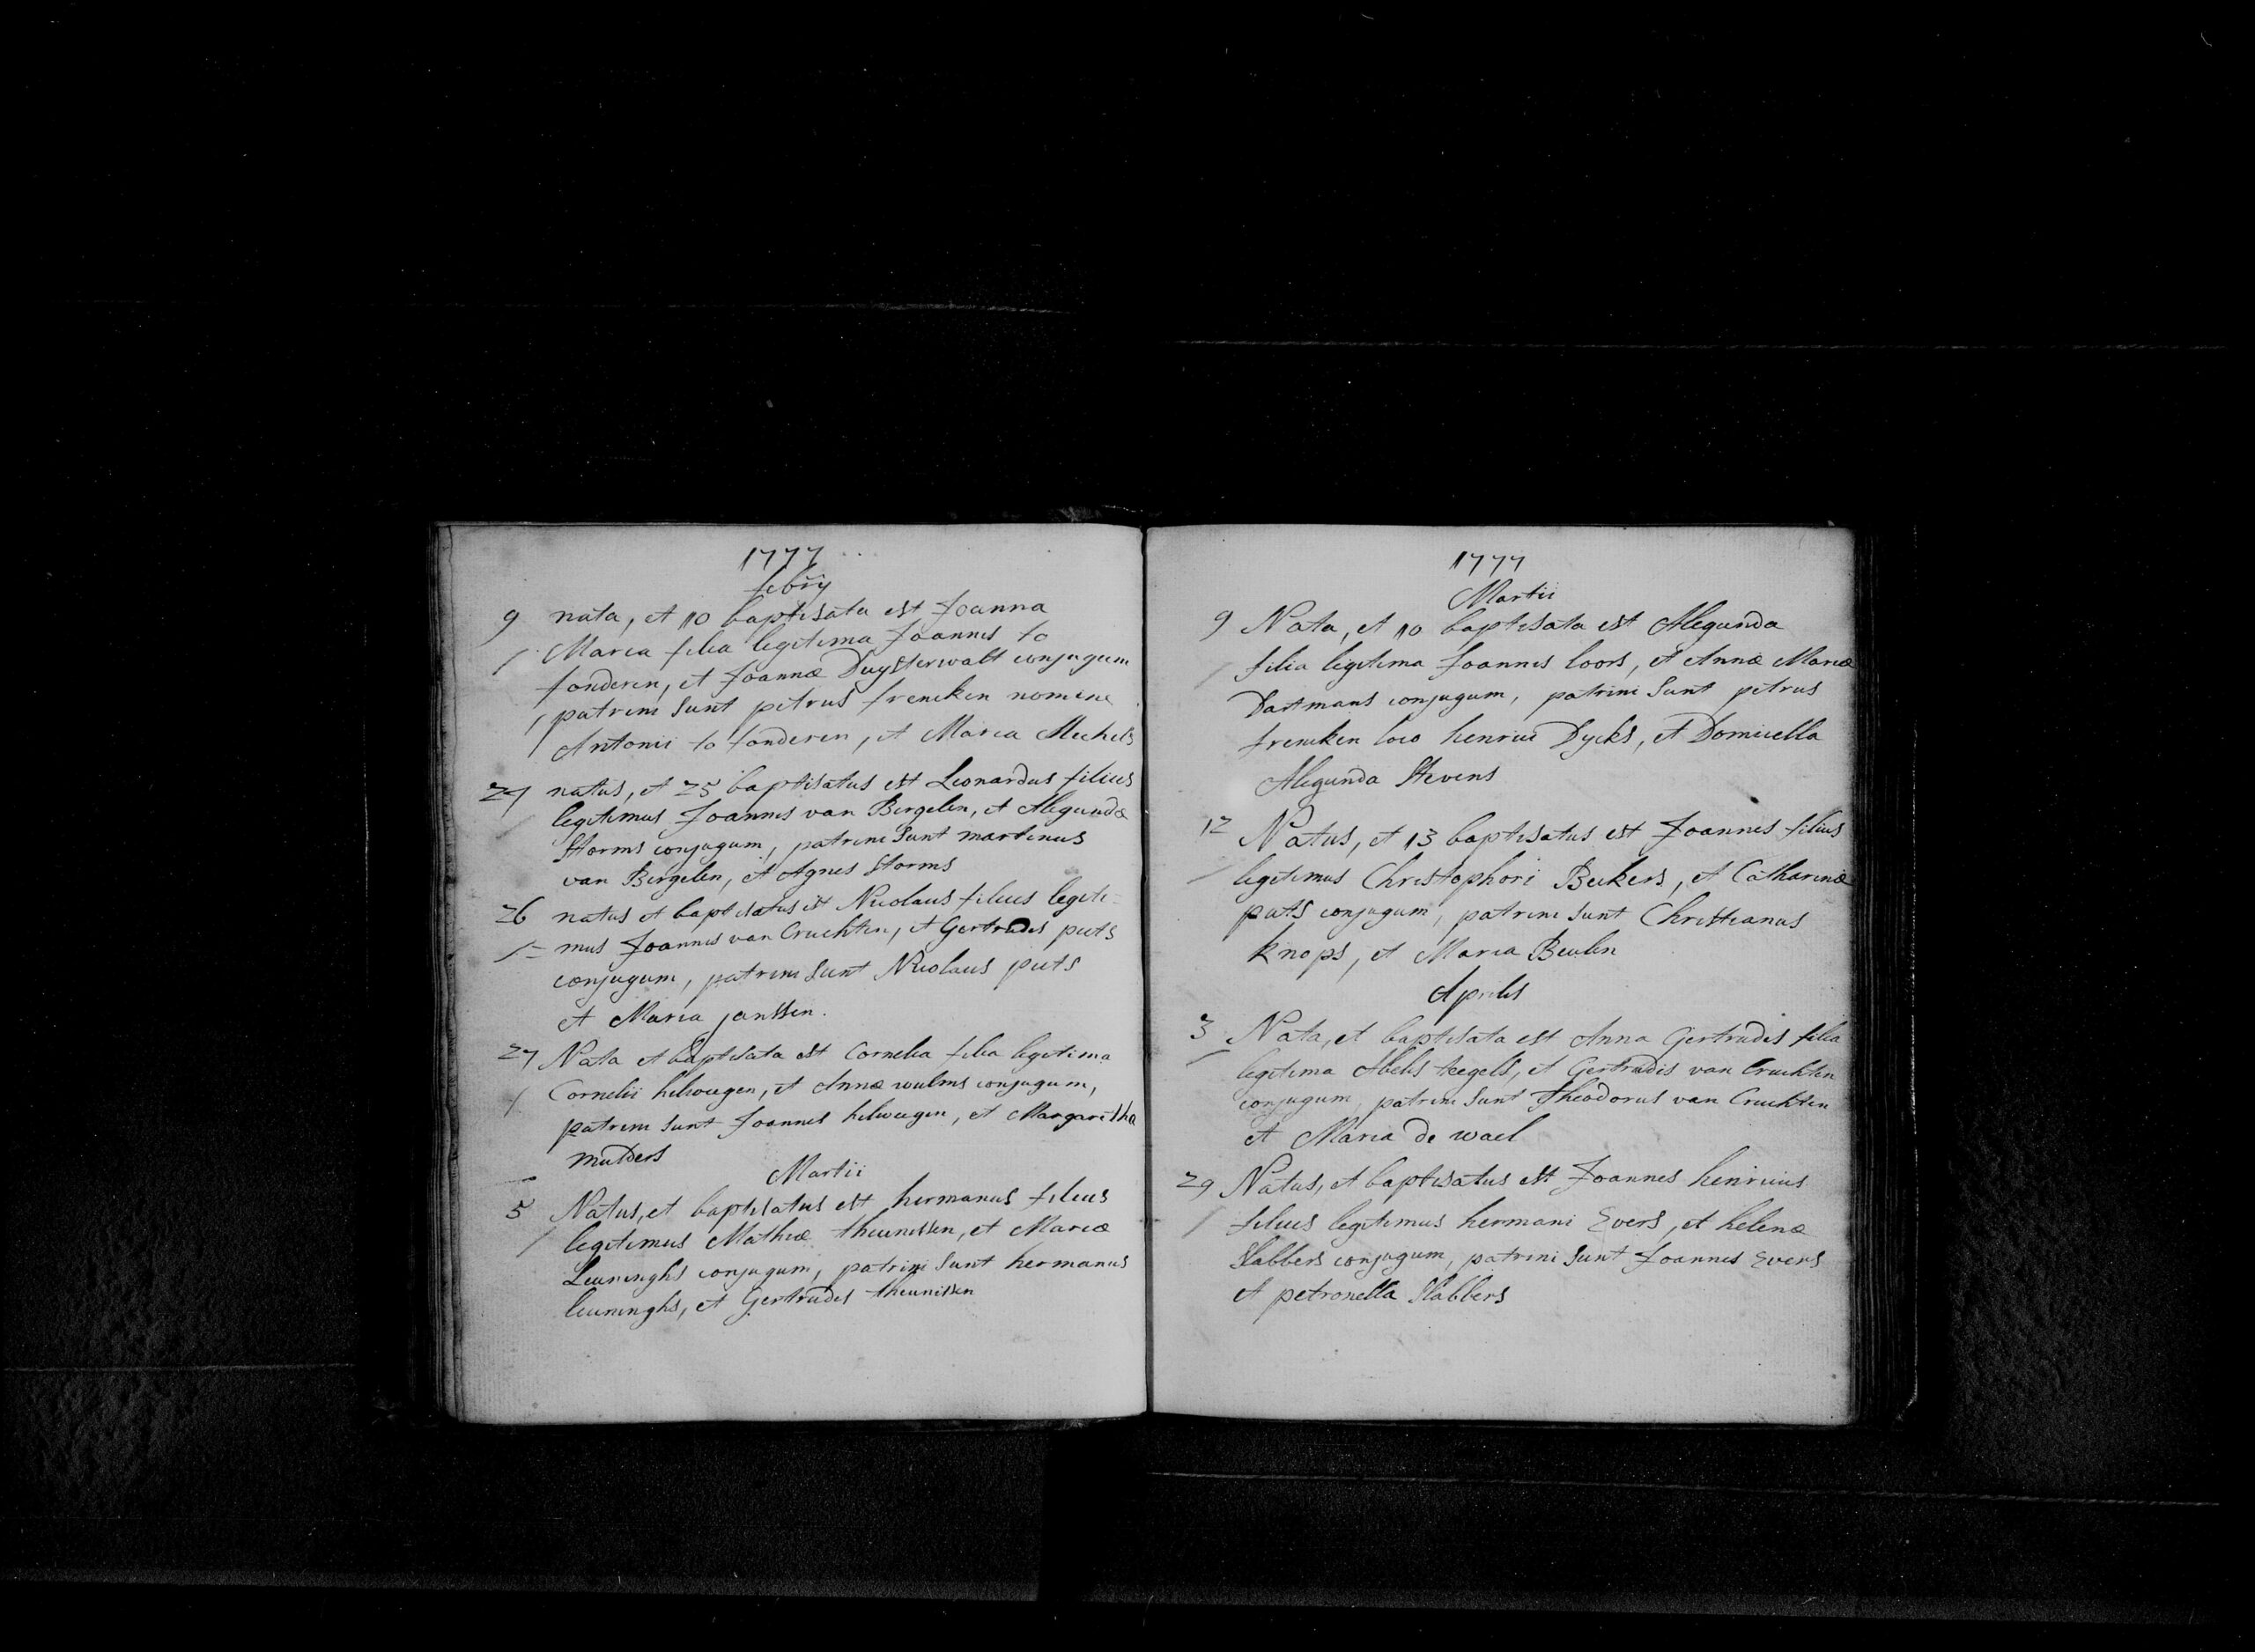 1777
febrij
9 nata, et 10 baptisata est Joanna
Maria filia legitima Joannis to
fonderen, et Joannæ Duysterwalt conjugum
patrini sunt petrus frencken nomine
Antonii to fonderen, et Maria Mechels
24 natus, et 25 baptisatus est Leonardus filius
legitimus Joannis van Birgelen, et Alegundæ
Storms conjugum, patrini sunt martinus
van Birgelen, et Agnes Storms
26 natus et baptisatus est Nicolaus filius legiti-
mus Joannis van Cruchten, et Gertrudis puts
conjugum, patrini sunt Nicolaus puts
et Maria janssen.
27 Nata et baptisata est Cornelia filia legitima
Cornelii helwegen, et Annæ wulms conjugum,
patrini sunt Joannes helwegen, et Margaretha
mulders
Martii
5 Natus, et baptisatus est hermanus filius
legitimus Mathiæ theunissen, et Mariæ
Leuninghs conjugum, patrini sunt hermanus
leuninghs, et Gertrudis theunissen
1777
Martii
9 Nata, et 10 baptisata est Alegunda
filia legitima Joannis loors, et Annæ Mariæ
Dartmans conjugum, patrini sunt petrus
frencken loco henrici Dycks, et Domicella
Alegunda Stevens
12 Natus, et 13 baptisatus est Joannes filius
legitimus Christophori Beckers, et Catharinæ
puts conjugum, patrini sunt Christianus
knops, et Maria Beulen
Aprilis
3 Nata, et baptisata est Anna Gertrudis filia
legitima Abelis teegels, et Gertrudis van Cruchten
conjugum, patrini sunt Theodorus van Cruchten
et Maria de wael
29 Natus, et baptisatus est Joannes henricus
filius legitimus hermani Evers, et helenæ
Slabbers conjugum, patrini sunt Joannes Evers
et petronella Slabbers